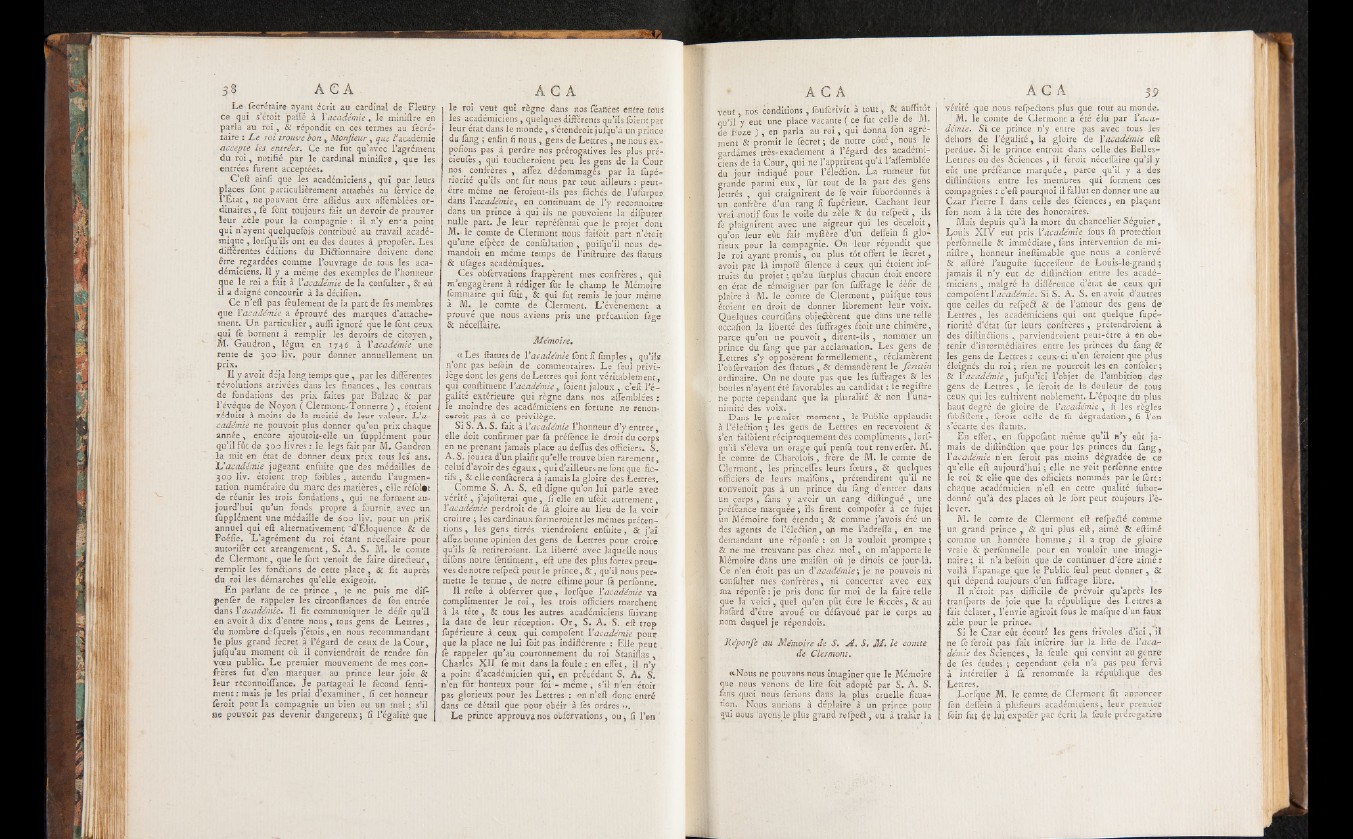 38 ACA
Le secrétaire ayant écrit au cardinal de Fleury
ce qui s'étoit passé à l'académie, le ministre en
parla au roi, & répondit en ces termes au secré-
taire : Le roi trouve bon, Monsieur, que l'académie
accepte les entrées. Ce ne fut qu'avec l'agrément
du roi, notifié par le cardinal ministre, que les
entrées furent acceptées.
C'est ainsi que les académiciens, qui par leurs
places sont particulièrement attachés au service de
l'Etat, ne pouvant être assidus aux assemblées or-
dinaires, se sont toujours fait un devoir de prouver
leur zèle pour la compagnie : il n'y en a point
qui n'ayent quelquefois contribué au travail acadé-
mique, lorsqu'ils ont eu des doutes à proposer. Les
différentes éditions du Dictionnaire doivent donc
être regardées comme l'ouvrage de tous les aca-
démiciens. Il y a même des exemples de l'honneur
que le roi a fait à l'académie de la consulter, & où
il a daigné concourir à la décision.
Ce n'est pas seulement de la part de ses membres
que l'académie a éprouvé des marques d'attache-
ment. Un particulier, aussi ignoré que le sont ceux
qui se bornent à remplir les devoirs de citoyen,
M. Gaudron, légua en 1746 à l'académie une
rente de 300 liv. pour donner annuellement un
prix.
Il y avoit déja long temps que, par les différentes
révolutions arrivées dans les finances, les contrats
de fondations des prix faites par Balzac & par
l'évêque de Noyon (Clermont-Tonnerre), étoient
réduits à moins de la moitié de leur valeur. L'a-
cadémie ne pouvoit plus donner qu'un prix chaque
année, encore ajoutoit-elle un supplément pour
qu'il fût de 300 livres : le legs fait par M. Gaudron
la mit en état de donner deux prix tous les ans.
L'académie jugeant ensuite que des médailles de
300 liv. étaient trop foibles, attendu l'augmen-
tation numéraire du marc des matières, elle résolut
de réunir les trois fondations, qui ne forment au-
jourd'hui qu'un fonds propre à fournir, avec un
supplément une médaille de 600 liv. pour un prix
annuel qui est alternativement d'Eloquence & de
Poésie. L'agrément du roi étant nécessaire pour
autoriser cet arrangement, S. A. S. M. le comte
de Clermont, que le sort venait de faire directeur,
remplit les fonctions de cette place, & fit auprès
du roi les démarches qu'elle exigeoit.
En parlant de ce prince, je ne puis me dis-
penser de rappeler les circonstances de son entrée
dans l'académie. Il fit communiquer le désir qu'il
en avoit à dix d'entre nous, tous gens de Lettres,
du nombre desquels j'étois, en nous recommandant
le plus grand secret à l'égard de ceux de la Cour,
jusqu'au moment où il conviendroit de rendre son
vœu public. Le premier mouvement de mes con-
frères fut d'en marquer au prince leur joie &
leur reconnoissance. Je partageai le second senti-
ment : mais je les priai d'examiner, si cet honneur
seroit pour la compagnie un bien ou un mal ; s'il
ne pouvoit pas devenir dangereux ; si l'égalité que
ACA
le roi veut qui règne dans nos séances entre tous
les académiciens, quelques différents qu'ils soient par
leur état dans le monde, s'étendroit jusqu'à un prince
du sang ; enfin si nous, gens de Lettres, ne nous ex-
posions pas à perdre nos prérogatives les plus pré-
cieuses, qui toucheroient peu les gens de la Cour
nos confrères, assez dédommagés par la supé-
riorité qu'ils ont sur nous par tout ailleurs : peut-
être même ne seroient-ils pas fâchés de l'usurper
dans l'académie, en continuant de l'y reconnoître
dans un prince à qui ils ne pouvoient la disputer
nulle part. Je leur représentai que le projet dont
M. le comte de Clermont nous faisoit part n'étoit
qu'une espèce de consultation, puisqu'il nous de-
mandoit en même temps de l'instruire des statuts
& usages académiques.
Ces observations frappèrent mes confrères, qui
m'engagèrent à rédiger sur le champ le Mémoire
sommaire qui suit, & qui fut remis le jour même
à M. le comte de Clermont. L'événement a
prouvé que nous avions pris une précaution sage
& nécessaire.
Mémoire.
« Les statuts de l'académie sont si simples, qu'ils
n'ont pas besoin de commentaires. Le seul privi-
lège dont les gens de Lettres qui sont véritablement,
qui constituent l'académie, soient jaloux, c'est l'é-
galité extérieure qui règne dans nos assemblées :
le moindre des académiciens en fortune ne renon-
ceroit pas à ce privilège.
Si S. A. S. fait à l'académie l'honneur d'y entrer,
elle doit confirmer par sa présence le droit du corps
en ne prenant jamais place au dessus des officiers. S.
A. S. jouira d'un plaisir qu'elle trouve bien rarement,
celui d'avoir des égaux, qui d'ailleurs ne sont que fic-
tifs, & elle consacrera à jamais la gloire des Lettres.
Comme S. A. S. est digne qu'on lui parle avec
vérité, j'ajoûterai que, si elle en usoit autrement,
l'académie perdroit de sa gloire au lieu de la voir
croître ; les cardinaux formeroient les mêmes préten-
tions, les gens titrés viendroient ensuite, & j'ai
assez bonne opinion des gens de Lettres pour croire
qu'ils se retireroient. La liberté avec laquelle nous
disons notre sentiment, est une des plus fortes preu-
ves de notre respect pour le prince, &, qu'il nous per-
mette le terme, de notre estime pour sa personne.
Il reste à observer que, lorsque l'académie va
complimenter le roi, les trois officiers marchent
à la tête, & tous les autres académiciens suivant
la date de leur réception. Or, S. A. S. est trop
supérieure à ceux qui composent l'académie pour
que la place ne lui soit pas indifférente : Elle peut
se rappeler qu'au couronnement du roi Stanislas,
Charles XII se mit dans la foule : en effet, il n'y
a point d'académicien qui, en précédant S. A. S.
n'en fût honteux pour soi - même, s'il n'en étoit
pas glorieux pour les Lettres : on n'est donc entré
dans ce détail que pour obéir à ses ordres ».
Le prince approuva nos observations, ou, si l'on
ACA
veut, nos conditions, souscrivit à tout, & aussitôt
qu'il y eut une place vacante (ce fut celle de M.
de Boze), en parla au roi, qui donna son agré-
ment & promit le secret ; de notre côté, nous le
gardâmes très-exactement à l'égard des académi-
ciens de la Cour, qui ne l'apprirent qu'à l'assemblée
du jour indiqué pour l'élection. La rumeur fut
grande parmi eux, sur tout de la part des gens
lettrés, qui craignirent de se voir subordonnés à
un confrère d'un rang si supérieur. Cachant leur
vrai motif sous le voile du zèle & du respect, ils
se plaignirent avec une aigreur qui les déceloit,
qu'on leur eût fait mystère d'un dessein si glo-
rieux pour la compagnie. On leur répondit que
le roi ayant promis, ou plus tôt offert le secret,
avoit par là imposé silence à ceux qui étoient ins-
truits du projet ; qu'au surplus chacun étoit encore
en état de témoigner par son suffrage le désir de
plaire à M. le comte de Clermont, puisque tous
étoient en droit de donner librement leur voix.
Quelques courtisans objectèrent que dans une telle
occasion la liberté des suffrages étoit une chimère,
parce qu'on ne pouvoit, dirent-ils, nommer un
prince du sang que par acclamation. Les gens de
Lettres s'y opposèrent formellement, réclamèrent
l'observation des statuts, & demandèrent le scrutin
ordinaire. On ne doute pas que les suffrages & les
boules n'ayent été favorables au candidat : le registre
ne porte cependant que la pluralité & non l'una-
nimité des voix.
Dans le premier moment, le Public applaudit
à l'élection ; les gens de Lettres en recevoient &
s'en faisoient réciproquement des compliments, lors-
qu'il s'éleva un orage qui pensa tout renverser. M.
le comte de Charolois, frère de M. le comte de
Clermont, les princesses leurs sœurs, & quelques
officiers de leurs maisons, prétendirent qu'il ne
convenoit pas à un prince du sang d'entrer dans
un corps, sans y avoir un rang distingué, une
préséance marquée, ils firent composer à ce sujet
un Mémoire fort étendu ; & comme j'avois été un
des agents de l'élection, on me l'adressa, en me
demandant une réponse : on la vouloit prompte ;
& ne me trouvant pas chez moi, on m'apporta le
Mémoire dans une maison où je dînois ce jour-là.
Ce n'en étoit pas un d'académie ; je ne pouvois ni
consulter mes confrères, ni concerter avec eux
ma réponse : je pris donc sur moi de la faire telle
que la voici, quel qu'en pût être le succès, & au
hasard d'être avoué ou désavoué par le corps au
nom duquel je répondois.
Réponse au Mémoire de S. A. S. M. le comte
de Clermont.
« Nous ne pouvons nous imaginer que le Mémoire
que nous venons de lire soit adopté par S. A. S.
sans quoi nous serions dans la plus cruelle situa-
tion. Nous aurions à déplaire à un prince pour
qui nous avons le plus grand respect, ou à trahir la
ACA 39
vérité que nous respectons plus que tout au monde.
M. le comte de Clermont a été élu par l'aca-
démie. Si ce prince n'y entre pas avec tous les
dehors de l'égalité, la gloire de l'académie est
perdue. Si le prince entroit dans celle des Belles-
Lettres ou des Sciences, il seroit nécessaire qu'il y
eût une préséance marquée, parce qu'il y a des
distinctions entre les membres qui forment ces
compagnies : c'est pourquoi il fallut en donner une au
Czar Pierre I dans celle des sciences, en plaçant
son nom à la tête des honoraires.
Mais depuis qu'à la mort du chancelier Séguier,
Louis XIV eut pris l'académie sous sa protection
personnelle & immédiate, sans intervention de mi-
nistre, honneur inestimable que nous a conservé
& assûré l'auguste successeur de Louis-le-grand ;
jamais il n'y eut de distinction entre les acadé-
miciens, malgré la différence d'état de ceux qui
composent l'académie. Si S. A. S. en avoit d'autres
que celles du respect & de l'amour des gens de
Lettres, les académiciens qui ont quelque supé-
riorité d'état sur leurs confrères, prétendroient à
des distinctions, parviendroient peut-être à en ob-
tenir d'intermédiaires entre les princes du sang &
les gens de Lettres : ceux-ci n'en seroient que plus
éloignés du roi ; rien ne pourroit les en consoler ;
& l'académie, jusqu'ici l'objet de l'ambition des
gens de Lettres, le seroit de la douleur de tous
ceux qui les cultivent noblement. L'époque du plus
haut degré de gloire de l'académie, si les règles
subsistent, seroit celle de sa dégradation, si l'on
s'écarte des statuts.
En effet, en supposant même qu'il n'y eût ja-
mais de distinction que pour les princes du sang,
l'académie n'en seroit pas moins dégradée de ce
qu'elle est aujourd'hui ; elle ne voit personne entre
le roi & elle que des officiers nommés par le sort :
chaque académicien n'est en cette qualité subor-
donné qu'à des places où le sort peut toujours l'é-
lever.
M. le comte de Clermont est respecté comme
un grand prince, & qui plus est, aimé & estimé
comme un honnête homme ; il a trop de gloire
vraie & personnelle pour en vouloir une imagi-
naire ; il n'a besoin que de continuer d'être aimé :
voilà l'apanage que le Public seul peut donner, &
qui dépend toujours d'un suffrage libre.
Il n'étoit pas difficile de prévoir qu'après les
transports de joie que la république des Lettres a
fait éclater, l'envie agiroit sous le masque d'un faux
zèle pour le prince.
Si le Czar eût écouté les gens frivoles d'ici, il
ne se seroit pas fait inscrire sur la liste de l'aca-
démie des Sciences, la seule qui convint au genre
de ses études ; cependant cela n'a pas peu servi
à intéresser à sa renommée la république des
Lettres.
Lorsque M. le comte de Clermont fit annoncer
son dessein à plusieurs académiciens, leur premier
soin fut de lui exposer par écrit la seule prérogative